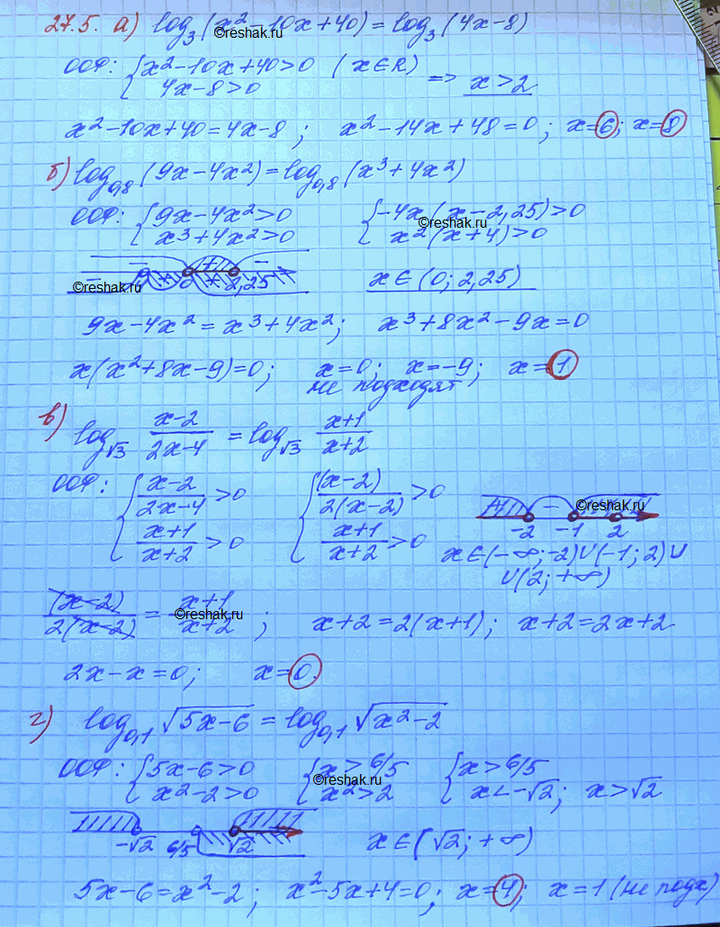 27.5. а) log₃(x²-10x+40)=log₃(4x-8)
ООФ: { x²-10x+40>0 (x∈R)
4x-8>0 => x>2
x²-10x+40=4x-8; x²-14x+48=0; x=6; x=8
б) log₀,₈(9x-4x²)=log₀,₈(x³+4x²)
ООФ: { 9x-4x²>0 { -4x(x-2,25)>0
x³+4x²>0 x²(x+4)>0
- + -
- + 0 + 2,25 x∈(0; 2,25)
9x-4x²=x³+4x²; x³+8x²-9x=0
x(x²+8x-9)=0; x=0; x=-9; x=1
не подходят
в) log_√3 (x-2)/(2x-4) = log_√3 (x+1)/(x+2)
ООФ: { (x-2)/(2x-4)>0 { (x-2)/(2(x-2))>0
(x+1)/(x+2)>0 (x+1)/(x+2)>0
+ -
-2 -1 2
x∈(-∞;-2)∪(-1;2)∪
∪(2;+∞)
(x-2)/(2(x-2)) = (x+1)/(x+2); x+2=2(x+1); x+2=2x+2
2x-x=0; x=0.
г) log₀,₁√(5x-6)=log₀,₁√(x²-2)
ООФ: { 5x-6>0 { x>6/5 { x>6/5
x²-2>0 x²>2 x<-√2; x>√2
-√2 6/5 √2 x∈(√2; +∞)
5x-6=x²-2; x²-5x+4=0; x=4; x=1 (не подх)
©reshak.ru
©reshak.ru
©reshak.ru
©reshak.ru
©reshak.ru
©reshak.ru